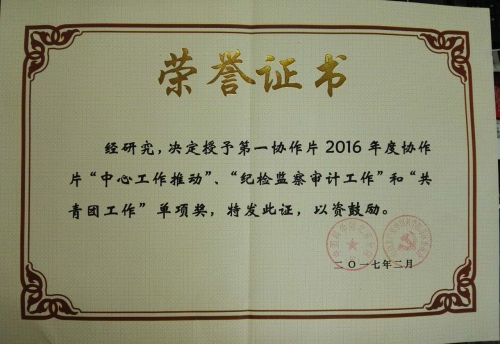 荣誉证书
经研究，决定授予第一协作片2016年度协作
片“中心工作推动”、“纪检监察审计工作”和“共
青团工作”单项奖，特发此证，以资鼓励。
二〇一七年二月